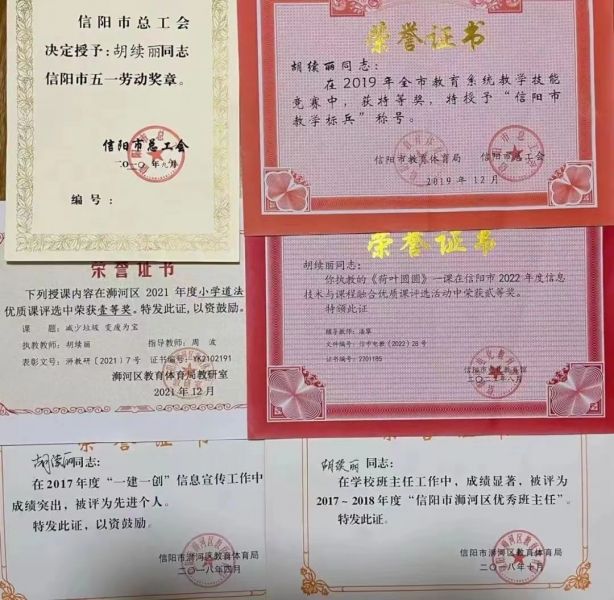 信阳市总工会
决定授予:胡续丽同志
信阳市五一劳动奖章。
信阳市总工会
二〇一〇年九月
编号:
荣誉证书
胡续丽同志:
在2019年全市教育系统教学技能
竞赛中,获特等奖,特授予“信阳市
教学标兵”称号。
信阳市教育体育局 信阳市总工会
2019年12月
荣誉证书
下列授课内容在浉河区2021年度小学道法
优质课评选中荣获壹等奖。特发此证,以资鼓励。
课 题:减少垃圾 变废为宝
执教教师:胡续丽 指导教师:周 波
表彰文号:浉教研【2021】7号 证书编号:YK2102191
浉河区教育体育局教研室
2021年12月
荣誉证书
胡续丽同志:
你执教的《荷叶圆圆》一课在信阳市2022年度信息
技术与课程融合优质课评选活动中荣获贰等奖。
特颁此证
文件编号:信市电教【2022】28号
证书编号:2201185
信阳市电化教育馆
荣誉证书
胡续丽同志:
在2017年度“一建一创”信息宣传工作中
成绩突出,被评为先进个人。
特发此证,以资鼓励。
信阳市浉河区教育体育局
二〇一八年四月
荣誉证书
胡续丽同志:
在学校班主任工作中,成绩显著,被评为
2017~2018年度“信阳市浉河区优秀班主任”。
特发此证。
信阳市浉河区教育体育局
二〇一八年十月